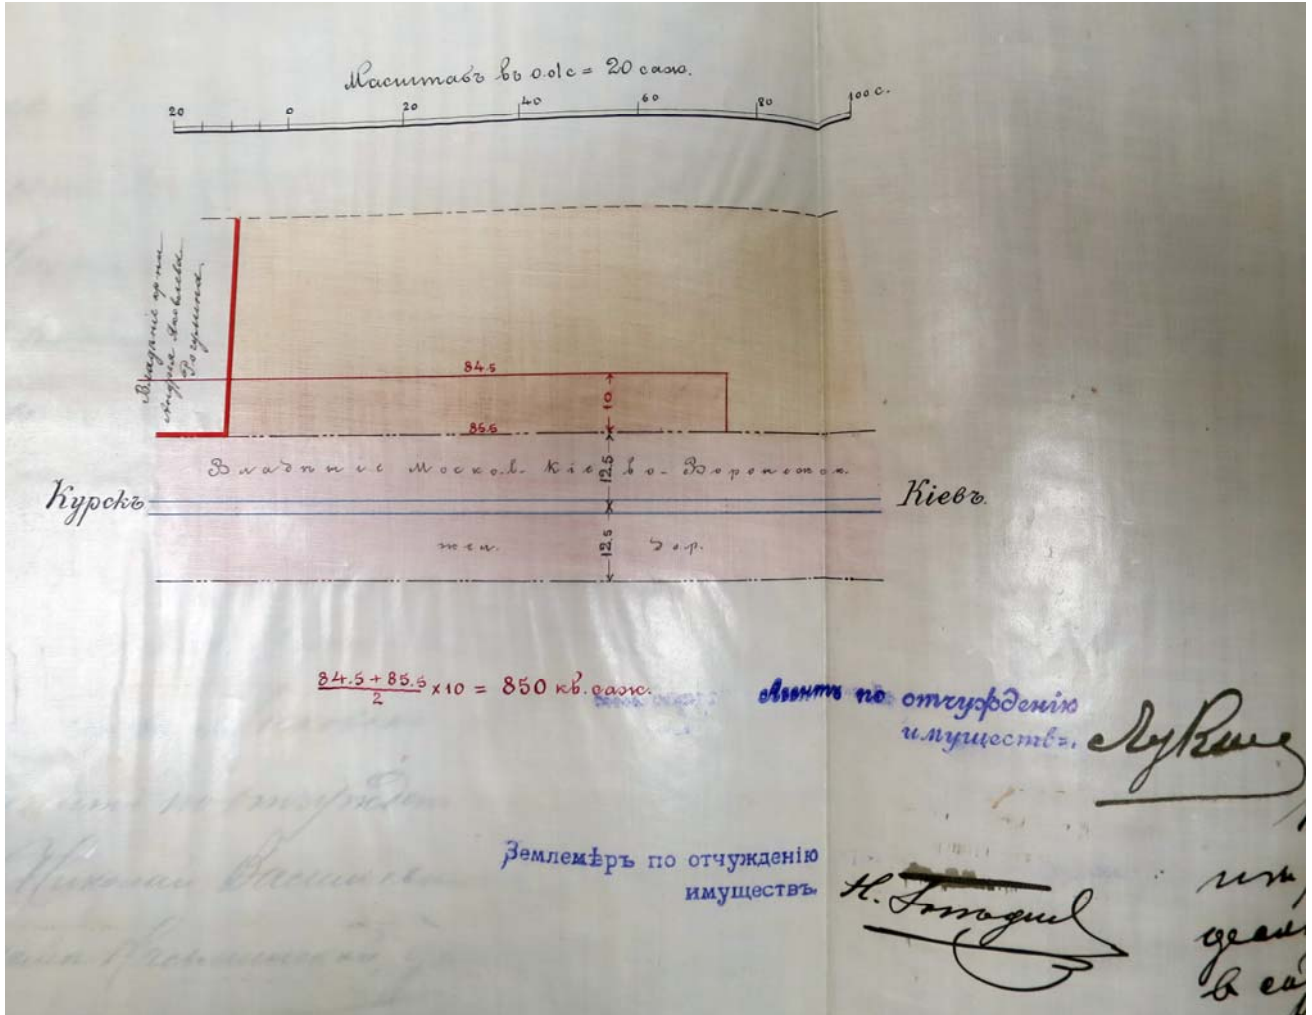 Масштабъ въ 0.01с = 20 саж.
20 0 20 40 60 80 100 с.
Владѣніе кр-на
Андрея Яковлева
84.5
10
85.5
12.5
Владѣніе Москов. Кіево-Воронежск.
Курскъ
Кіевъ.
12.5
жел. дор.
84.5 + 85.5
2
x 10 = 850 кв. саж.
Агентъ по отчужденію
имуществъ.
Землемѣръ по отчужденію
имуществъ.
Н.
в